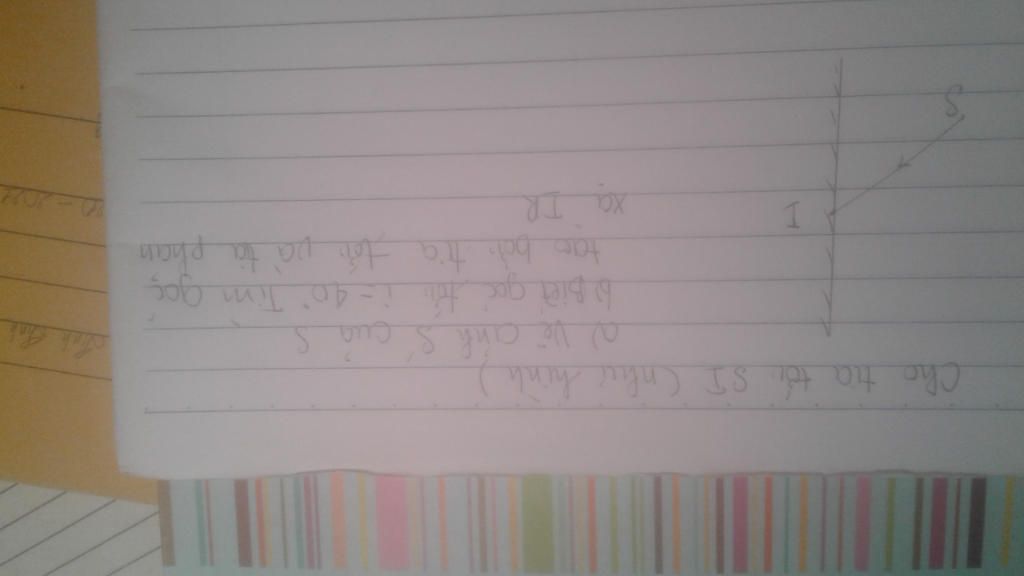 Cho tia tới SI (như hình)
a) Vẽ ảnh S' của S
b) Biết góc tới i = 40° Tìm góc
tạo bởi tia tới và tia phản
xạ IR
I
S